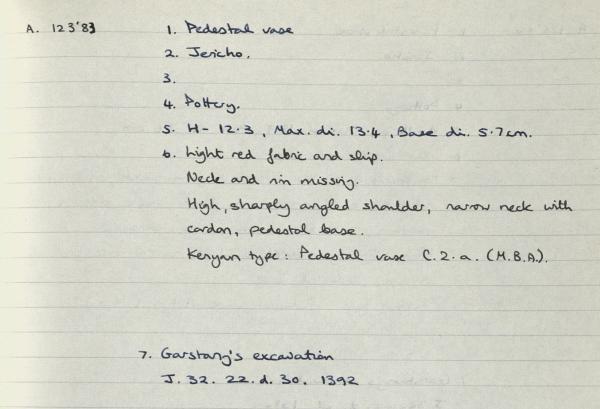 A. 123'83 1. Pedestal vase
2. Jericho.
3.
4. Pottery.
5. H- 12.3, Max. di. 13.4, Base di. 5.7cm.
6. Light red fabric and slip.
Neck and rim missing.
High, sharply angled shoulder, narrow neck with
cordon, pedestal base.
Kenyon type: Pedestal vase C.2.a. (M.B.A).
7. Garstang's excavation
J. 32. 22. d. 30. 1392